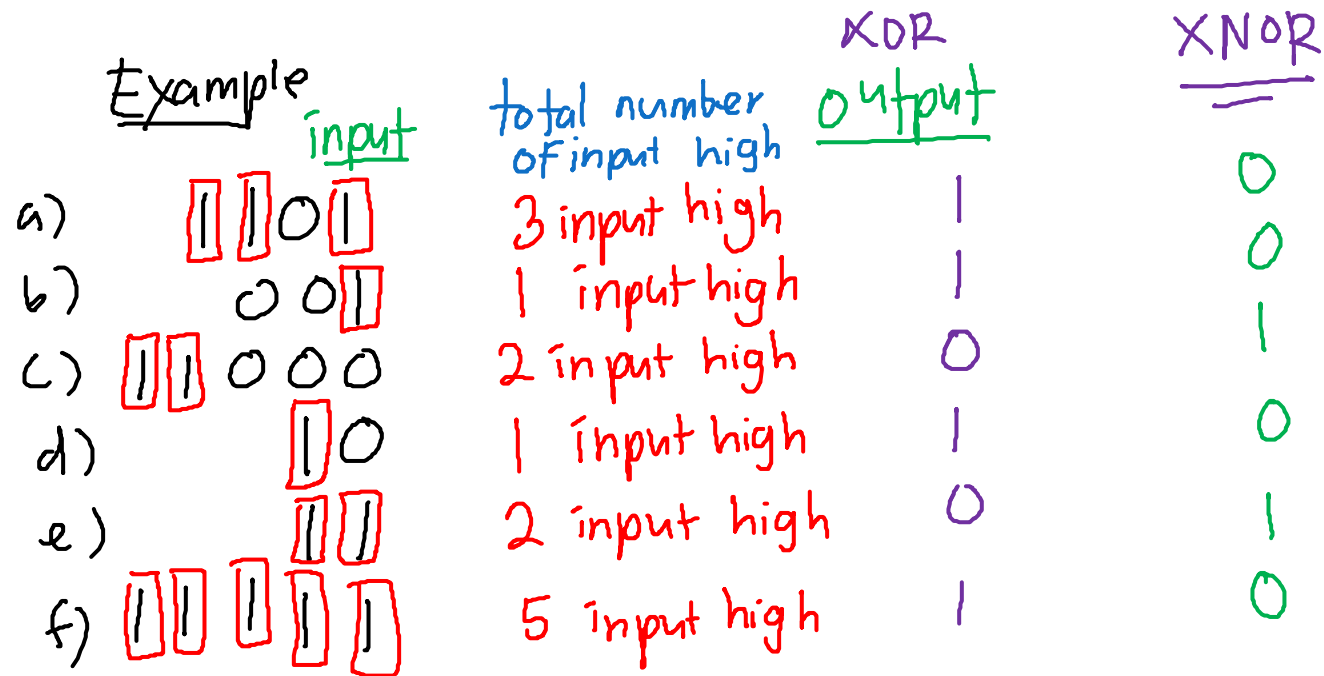 XOR XNOR
Example total number output
input of input high
a) 1 1 0 1 3 input high 1 0
b) 0 0 1 1 input high 1 0
c) 1 1 0 0 0 2 input high 0 1
d) 1 0 1 input high 1 0
e) 1 1 2 input high 0 1
f) 1 1 1 1 1 5 input high 1 0